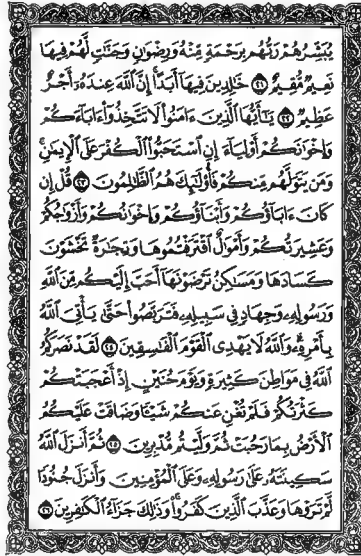 يُبَشِّرُهُمْ رَبُّهُم بِرَحْمَةٍ مِّنْهُ وَرِضْوَانٍ وَجَنَّاتٍ لَّهُمْ فِيهَا
نَعِيمٌ مُّقِيمٌ ﴿٢١﴾ خَالِدِينَ فِيهَا أَبَدًا إِنَّ اللَّهَ عِندَهُ أَجْرٌ
عَظِيمٌ ﴿٢٢﴾ يَا أَيُّهَا الَّذِينَ ءَامَنُوا لَا تَتَّخِذُوا ءَابَاءَكُمْ
وَإِخْوَانَكُمْ أَوْلِيَاءَ إِنِ اسْتَحَبُّوا الْكُفْرَ عَلَى الْإِيمَانِ
وَمَن يَتَوَلَّهُم مِّنكُمْ فَأُولَٰئِكَ هُمُ الظَّالِمُونَ ﴿٢٣﴾ قُلْ إِن
كَانَ ءَابَاؤُكُمْ وَأَبْنَاؤُكُمْ وَإِخْوَانُكُمْ وَأَزْوَاجُكُمْ
وَعَشِيرَتُكُمْ وَأَمْوَالٌ اقْتَرَفْتُمُوهَا وَتِجَارَةٌ تَخْشَوْنَ
كَسَادَهَا وَمَسَاكِنُ تَرْضَوْنَهَا أَحَبَّ إِلَيْكُم مِّنَ اللَّهِ
وَرَسُولِهِ وَجِهَادٍ فِي سَبِيلِهِ فَتَرَبَّصُوا حَتَّىٰ يَأْتِيَ اللَّهُ
بِأَمْرِهِ وَاللَّهُ لَا يَهْدِي الْقَوْمَ الْفَاسِقِينَ ﴿٢٤﴾ لَقَدْ نَصَرَكُمُ
اللَّهُ فِي مَوَاطِنَ كَثِيرَةٍ وَيَوْمَ حُنَيْنٍ إِذْ أَعْجَبَتْكُمْ
كَثْرَتُكُمْ فَلَمْ تُغْنِ عَنكُمْ شَيْئًا وَضَاقَتْ عَلَيْكُمُ
الْأَرْضُ بِمَا رَحُبَتْ ثُمَّ وَلَّيْتُم مُّدْبِرِينَ ﴿٢٥﴾ ثُمَّ أَنزَلَ اللَّهُ
سَكِينَتَهُ عَلَىٰ رَسُولِهِ وَعَلَى الْمُؤْمِنِينَ وَأَنزَلَ جُنُودًا
لَّمْ تَرَوْهَا وَعَذَّبَ الَّذِينَ كَفَرُوا وَذَٰلِكَ جَزَاءُ الْكَافِرِينَ ﴿٢٦﴾